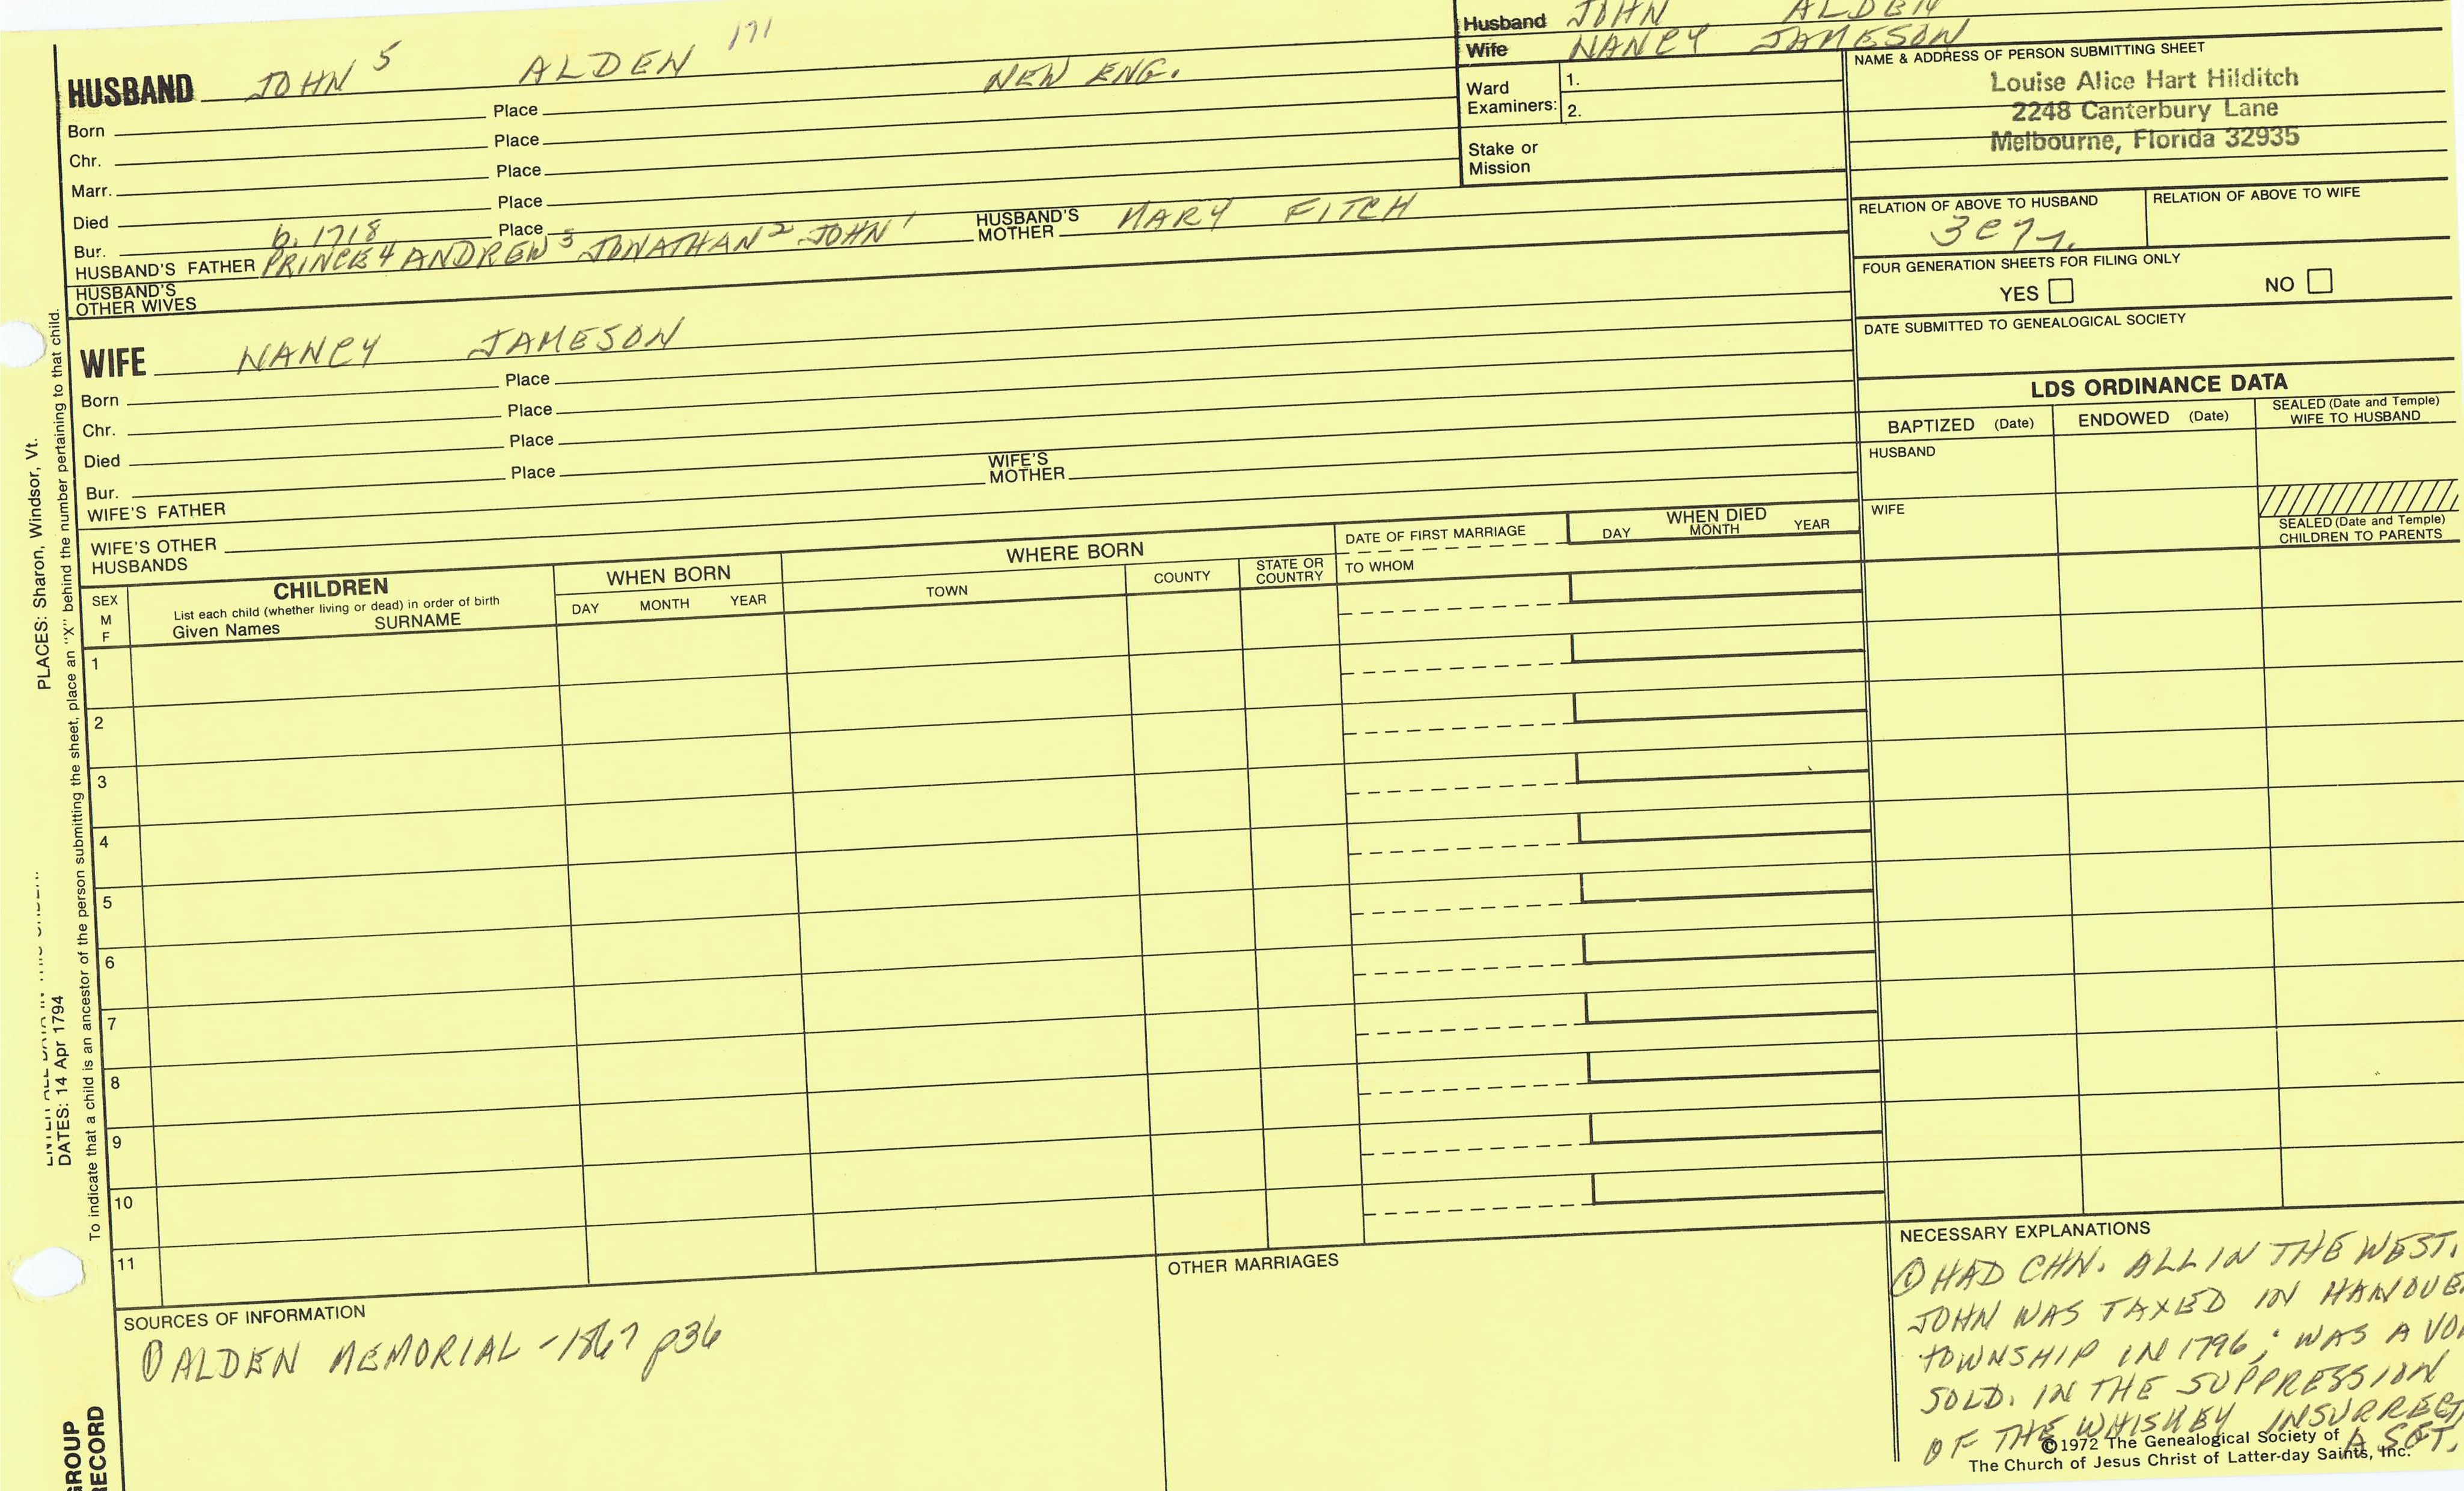 HUSBAND JOHN 5 ALDEN 171 NEW ENG.
Born Place
Chr. Place
Marr. Place
Died Place
Bur. b. 1718 Place
HUSBAND'S FATHER PRINCE 4 ANDREW 3 JONATHAN 2 JOHN 1 HUSBAND'S MOTHER MARY FITCH
HUSBAND'S OTHER WIVES
WIFE NANCY JAMESON
Born Place
Chr. Place
Died Place
Bur. Place
WIFE'S FATHER WIFE'S MOTHER
WIFE'S OTHER HUSBANDS
Husband JOHN ALDEN
Wife NANCY JAMESON
Ward Examiners: 1.
2.
Stake or Mission
NAME & ADDRESS OF PERSON SUBMITTING SHEET
Louise Alice Hart Hilditch
2248 Canterbury Lane
Melbourne, Florida 32935
RELATION OF ABOVE TO HUSBAND RELATION OF ABOVE TO WIFE
FOUR GENERATION SHEETS FOR FILING ONLY
YES NO
DATE SUBMITTED TO GENEALOGICAL SOCIETY
LDS ORDINANCE DATA
BAPTIZED (Date) ENDOWED (Date) SEALED (Date and Temple) WIFE TO HUSBAND
HUSBAND
WIFE
SEALED (Date and Temple)
CHILDREN TO PARENTS
SEX
M
F
CHILDREN
List each child (whether living or dead) in order of birth
Given Names SURNAME
WHEN BORN
DAY MONTH YEAR
WHERE BORN
TOWN COUNTY STATE OR COUNTRY
DATE OF FIRST MARRIAGE
TO WHOM
WHEN DIED
DAY MONTH YEAR
1
2
3
4
5
6
7
8
9
10
11
SOURCES OF INFORMATION
① ALDEN MEMORIAL - 1867 p36
OTHER MARRIAGES
NECESSARY EXPLANATIONS
① HAD CHN. ALL IN THE WEST.
JOHN WAS TAXED IN HANOVE
TOWNSHIP IN 1796; WAS A VO
SOLD. IN THE SUPPRESSION
OF THE WHISKEY INSURRECT
A SGT.
©1972 The Genealogical Society of
The Church of Jesus Christ of Latter-day Saints, Inc.
PLACES: Sharon, Windsor, Vt.
DATES: 14 Apr 1794
To indicate that a child is an ancestor of the person submitting the sheet, place an "X" behind the number pertaining to that child.
GROUP
RECORD